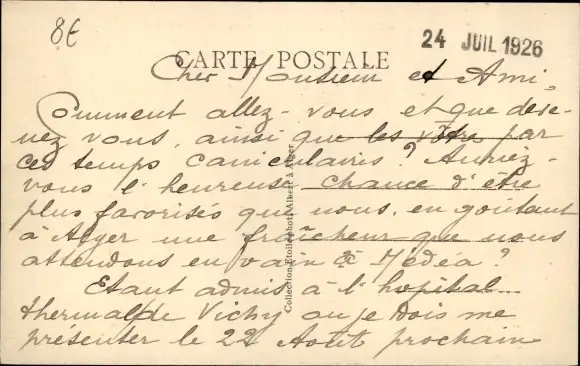 8€
24 JUIL 1926
CARTE POSTALE
Cher Monsieur et Ami,
Comment allez-vous et que deve-
nez vous, ainsi que les vôtre par
ces temps caniculaires ? Auriez-
vous l'heureuse chance d'être
plus favorisés que nous, en goûtant
à Alger une fraîcheur que nous
attendons en vain à Médéa ?
Etant admis à l'hopital
thermal de Vichy ou je dois me
présenter le 22 Août prochain
Collection Etoile phot. Albert à Alger